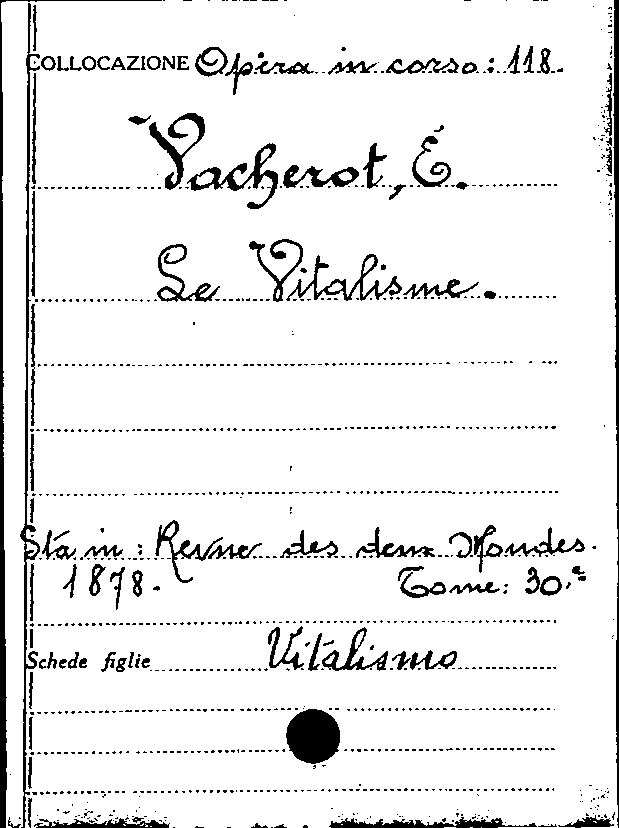 COLLOCAZIONE Opera in corso: 118.
Vacherot, É.
Le Vitalisme.
Sta in: Revue des deux Mondes.
1878. Tome: 30.e
Schede figlie Vitalismo